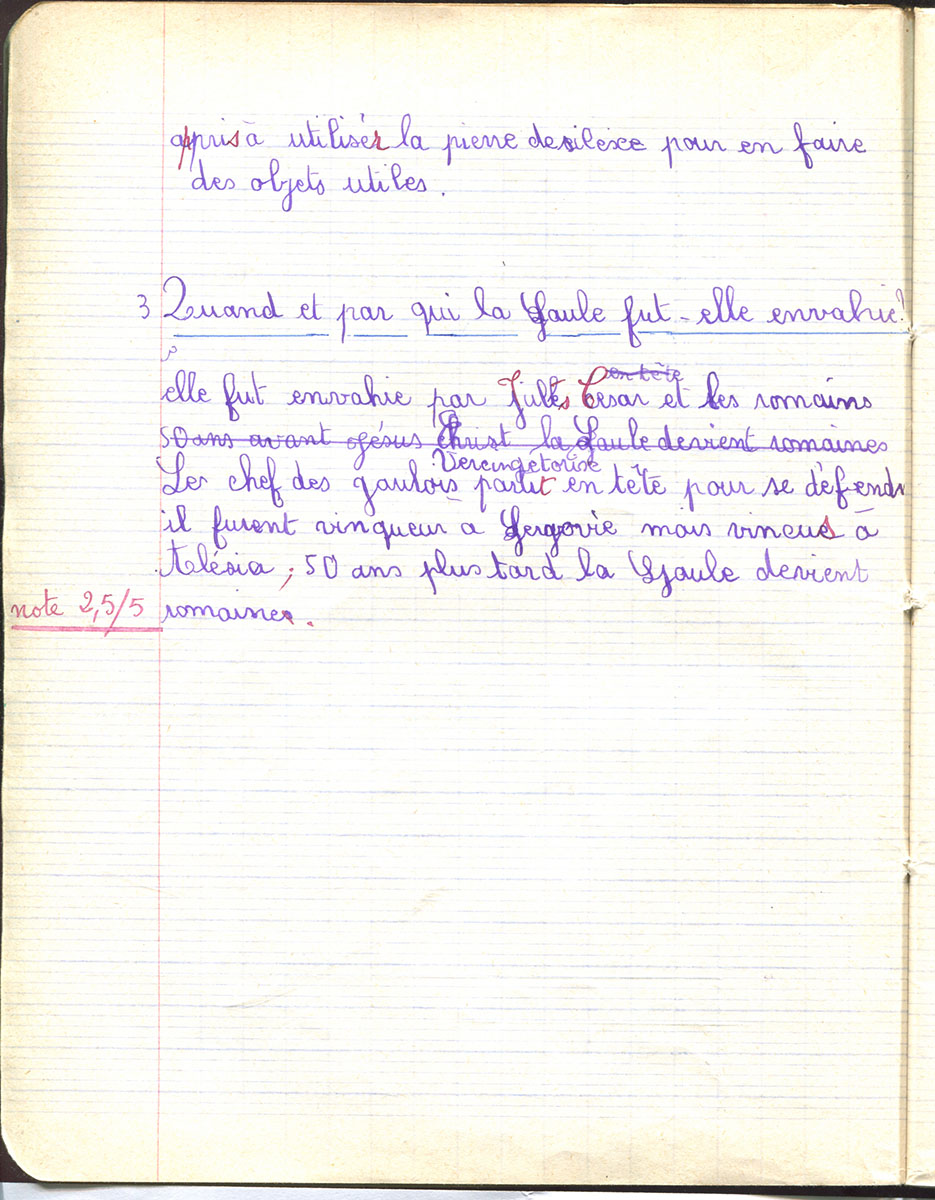 apprisà utiliser la pierre desilexe pour en faire
des objets utiles.
3 Quand et par qui la Gaule fut-elle envahie?
en tête
elle fut envahie par Jules César et les romains
50 ans avant Jésus Christ la Gaule devient romaines
Vercingétorise
Les chef des gaulois partit en tête pour se défendr
il furent vinqueur a Gergovie mais vincus à
Alésia ; 50 ans plus tard la Gaule devient
note 2,5/5 romaine.